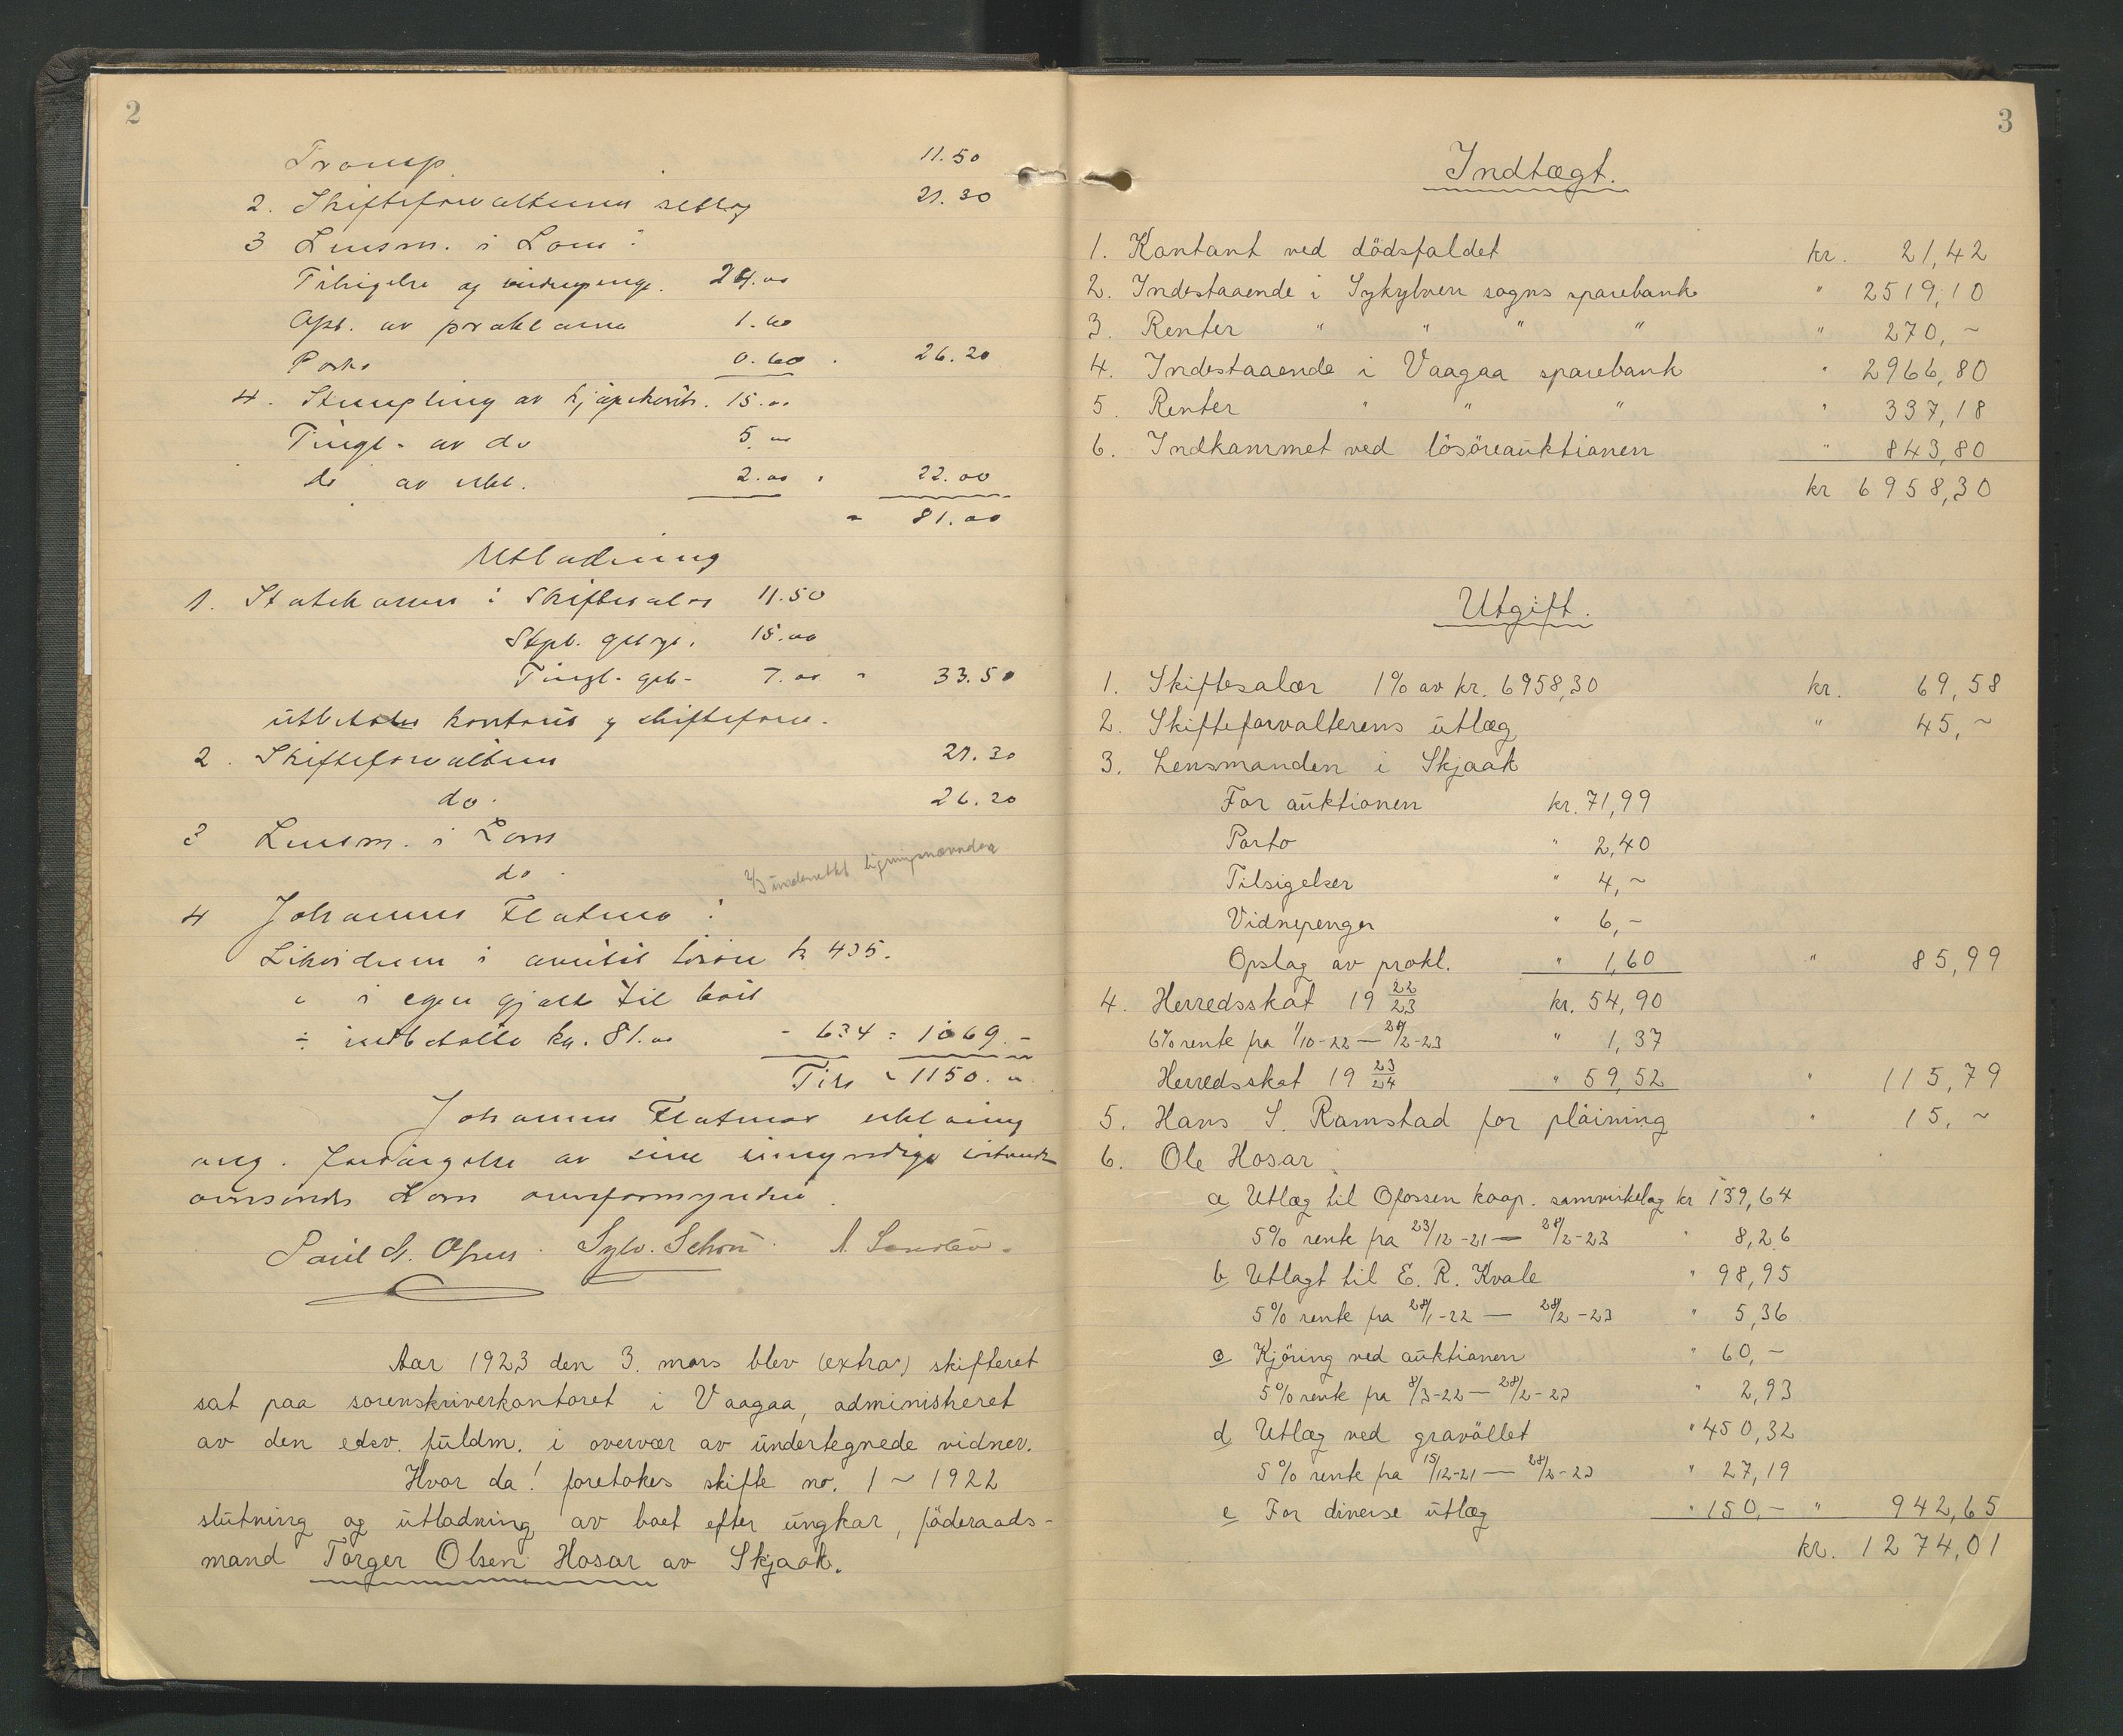 2
Transp. 11.50
2. Skifteforvalterens utlæg 21.30
3 Lensm. i Lom:
Tilsigelse og vidnepenge. 24.00
Opsl. av proklama 1.60
Porto 0.60 . 26.20
4. Stempling av kjøpekontr. 15.00
Tingl. av do 5.00
do av erkl. 2.00 " 22.00
" 81.00
Utlodning
1. Statskassen: Skiftesalær 11.50
Stpl. gebyr. 15.00
Tingl. geb. 7.00 " 33.50
utbetales kontant g skifteforv.
2. Skifteforvalteren 21.30
do. 26.20
3 Lensm. i Lom
do.
2/3 underrettet ligningsnævnden
4 Johannes Flatmo:
Likvideres i avertit løsøre kr 435.
" i egen gjæld til boet
÷ indbetalte kr. 81.00 - 634 = 1069.-
Tils " 1150.00
Johannes Flatmos erklæring
ang. forsørgelse av sine umyndige
omsendes Lom overformynderi.
Paul A. Opsen. Sylv. Schou. A. Sandbu.
Aar 1923 den 3. mars blev (extra) skifteret
sat paa sorenskriverkontoret i Vaagaa, administreret
av den edsv. fuldm. i overvær av undertegnede vidner.
Hvor da! foretokes skifte no. 1 ~ 1922
slutning og utlodning av boet efter ungkar, föderaads-
mand Torger Olsen Hosar av Skjaak.
3
Indtægt.
1. Kontant ved dödsfaldet kr. 21,42
2. Indestaaende i Sykylven sogns sparebank " 2519,10
3. Renter " " " " " 270,~
4. Indestaaende i Vaagaa sparebank " 2966,80
5. Renter " " " " 337,18
6. Indkommet ved lösöreauktionen " 843,80
kr 6958,30
Utgift.
1. Skiftesalær 1% av kr. 6958,30 kr. 69,58
2. Skifteforvalterens utlæg " 45,~
3. Lensmanden i Skjaak
For auktionen kr. 71,99
Porto " 2,40
Tilsigelser " 4,~
Vidnepenger " 6,~
Opslag av prokl. " 1,60 " 85,99
4. Herredsskat 19 22/23 kr. 54,90
6% rente fra 1/10-22 — 28/2-23 " 1,37
Herredsskat 19 23/24 " 59,52 " 115,79
5. Hans S. Ramstad for plöining " 15,~
6. Ole Hosar
a Utlæg til Ofossen koop. samvirkelag kr 139,64
5% rente fra 23/12-21 — 28/2-23 " 8,26
b Utlagt til E. R. Kvale " 98,95
5% rente fra 28/1-22 — 28/2-23 " 5,36
c Kjöring ved auktionen " 60,~
5% rente fra 8/3-22 — 28/2-23 " 2,93
d Utlæg ved gravöllet " 450,32
5% rente fra 15/12-21 — 28/2-23 " 27,19
e For diverse utlæg " 150,~ " 942,65
kr. 1274,01